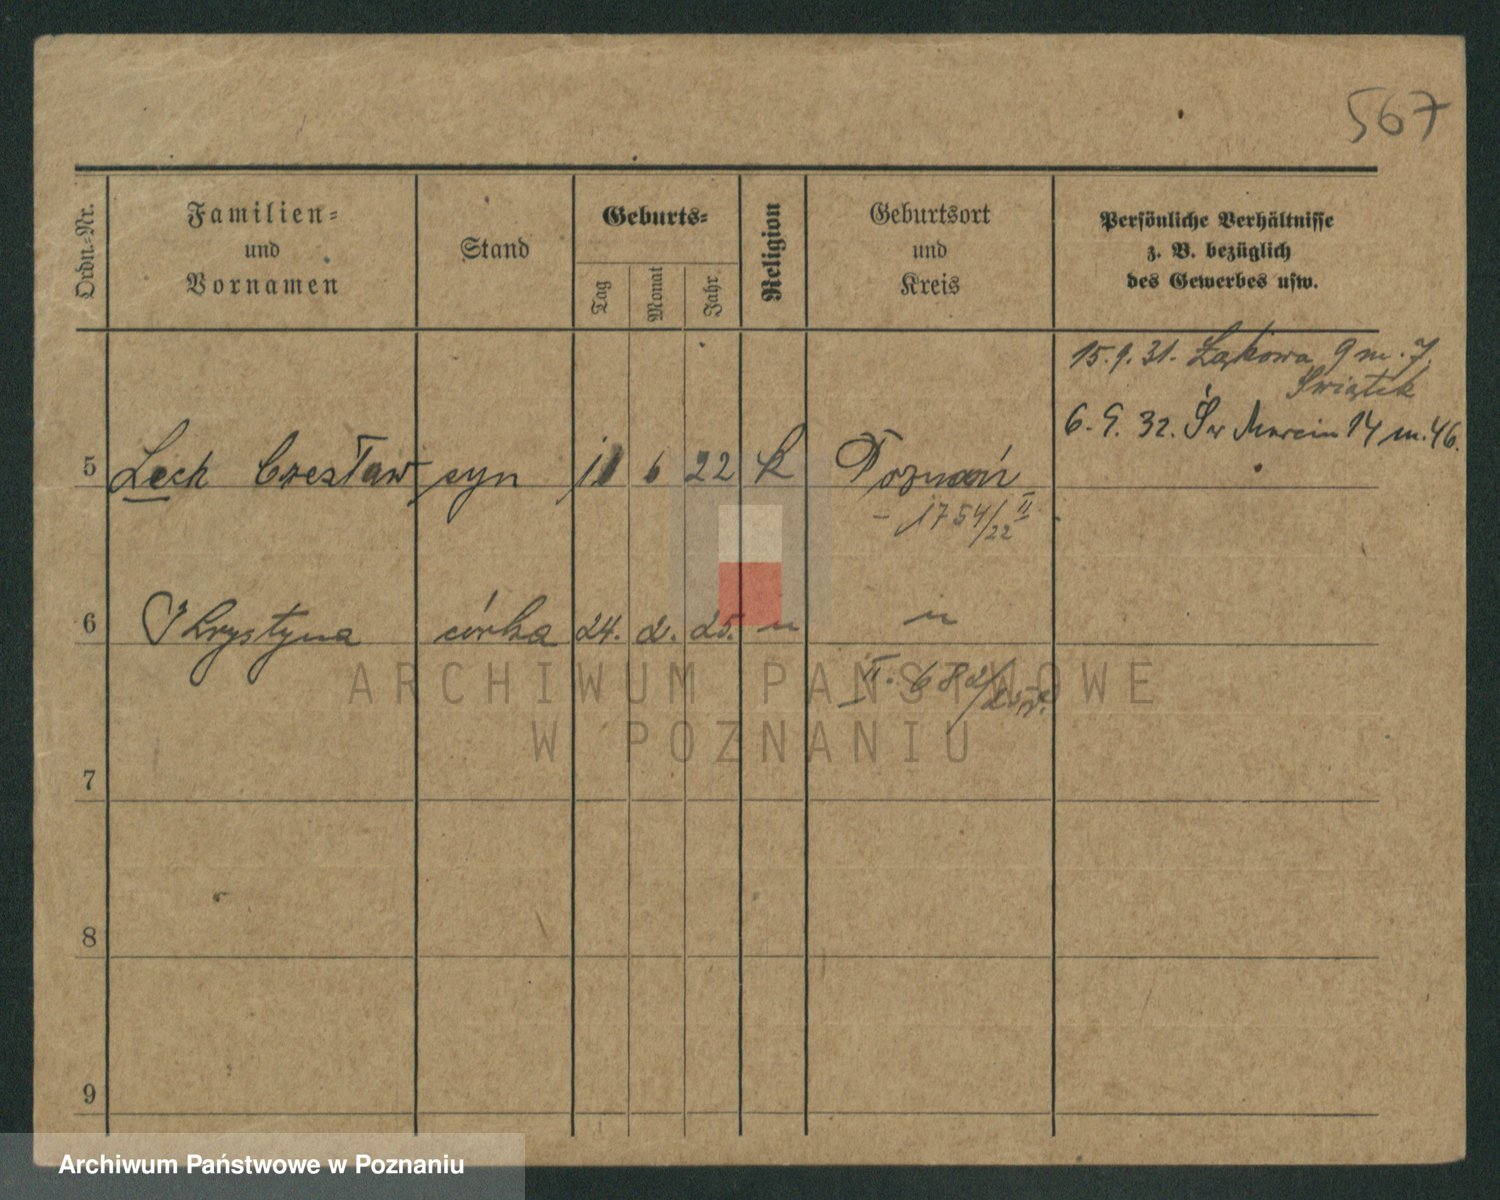 567
Ordn.-Nr.
Familien-
und
Vornamen
Stand
Geburts-
Tag
Monat
Jahr
Religion
Geburtsort
und
Kreis
Persönliche Verhältnisse
z. B. bezüglich
des Gewerbes usw.
15.9.31. Łąkowa 9 m. 7.
Świątek
6. 9. 32. Św Marcin 14 m. 46.
5 Lech Czesław syn 6 22 k Poznań
- 1754/22 II -
6 Krystyna córka 24. 2. 25. " "
II. 682/25
7
8
9
ARCHIWUM PAŃSTWOWE
W POZNANIU
Archiwum Państwowe w Poznaniu